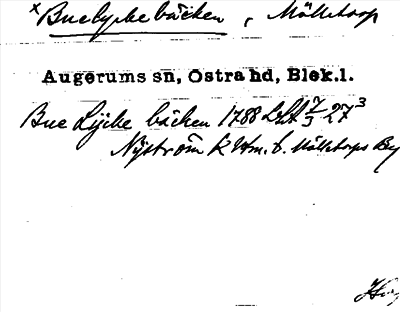 x Buelyckebäcken, Mölletorp
Augerums sn, Östra hd, Blek.l.
Bue Lÿcke bäcken 1788 LSA 7/3 27³
Nÿström k Utm. t. Mölletorps By